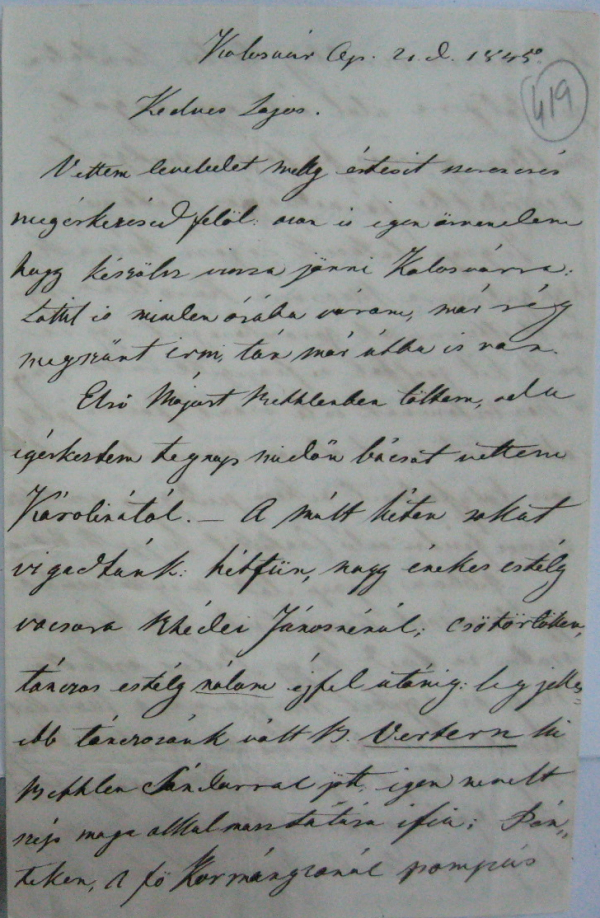 Kolosvár Ap. 21. d. 1845.
419
Kedves Lajos.
Vettem leveledet melly értesit szerencsés
megérkezésed felöl: azon is igen örvendem
hogy készülsz vissza jönni Kolosvárra:
is minden órába várom, már rég
megszünt irni, tán már útba is van.
Első Májust Bethlenben töltem, oda
igérkeztem tegnap midőn búcsút vettem
Károlinától. — A múlt héten sokat
vigadtunk: hétfün, nagy énekes estély
vacsora Rhédei Jánosnénál; csötörtöken,
tánczos estély nálam éjfel utánig: legjele=
sebb tánczosunk vólt B. Vertern ki
Bethlen Sándorral jött, igen nevelt
szép maga alkalmaztatásu ifiu; Pén=
teken, a fő Kormányzonál pompás